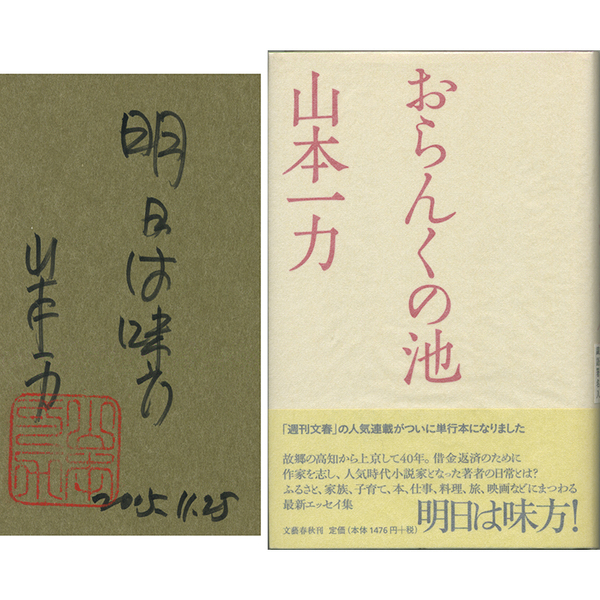 明日は味方
山本一力
2005.11.25
おらんくの池
山本一力
「週刊文春」の人気連載がついに単行本になりました
故郷の高知から上京して40年。借金返済のために
作家を志し、人気時代小説家となった著者の日常とは?
ふるさと、家族、子育て、本、仕事、料理、旅、映画などにまつわる
最新エッセイ集
明日は味方!
文藝春秋刊 定価(本体1476円+税)